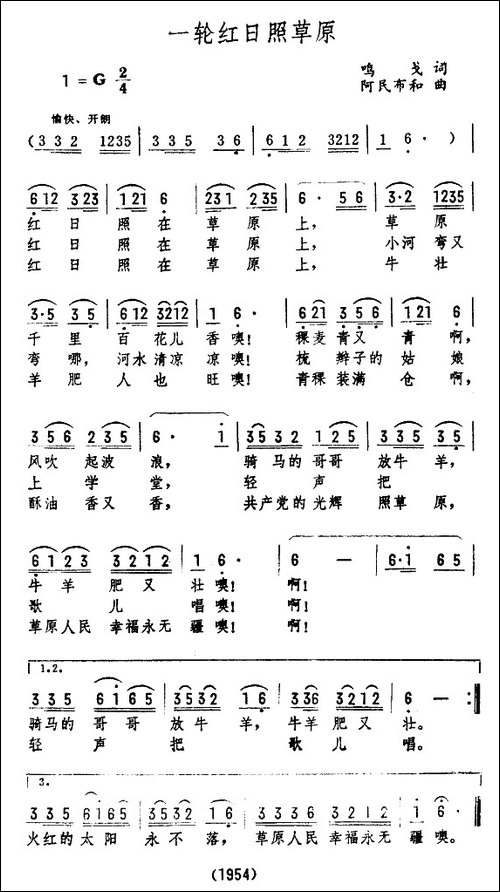 一轮红日照草原
1=G 2/4
鸣戈 词
阿民布和 曲
愉快、开朗
( 3 3 2 1235 | 3 3 5 3 6 | 6 1 2 3212 | 1 6· ) |
6 12 3 23 | 1 21 6 | 2 3 1 2 35 | 6· 5 6 | 3·2 1235 |
红 日 照 在 草 原 上, 草 原
红 日 照 在 草 原 上, 小河 弯又
红 日 照 在 草 原 上, 牛 壮
3·5 3 5 | 6 12 3212 | 1 6· | 6 21 3 5 6 | 2 1 6 |
千 里 百 花儿 香噢! 稞麦 青又 青 啊,
弯 哪, 河水 清凉 凉噢! 梳 辫子的 姑 娘
羊 肥 人 也 旺噢! 青稞 装满 仓 啊,
3 5 6 2 3 5 | 6· 1 | 3532 1 2 5 | 3 3 5 3 5 |
风吹 起波 浪, 骑 马的 哥哥 放牛 羊,
上 学 堂, 轻 声 把
酥油 香又 香, 共产党的 光辉 照草 原,
6123 3212 | 1 6· | 6 — | 6·1 6 5 |
牛 羊 肥 又 壮噢! 啊!
歌 儿 唱噢! 啊!
草原人民 幸福永无 疆噢! 啊!
1.2.
3 3 5 6165 | 3532 1 6 | 3 36 3212 | 6 — :|
骑马的 哥 哥 放 牛 羊, 牛羊 肥 又 壮。
轻 声 把 歌 儿 唱。
3.
3 3 5 6165 | 3532 1 6 | 3336 3212 | 1 6· |
火红的 太 阳 永 不 落, 草原人民 幸福永无 疆 噢。
(1954)